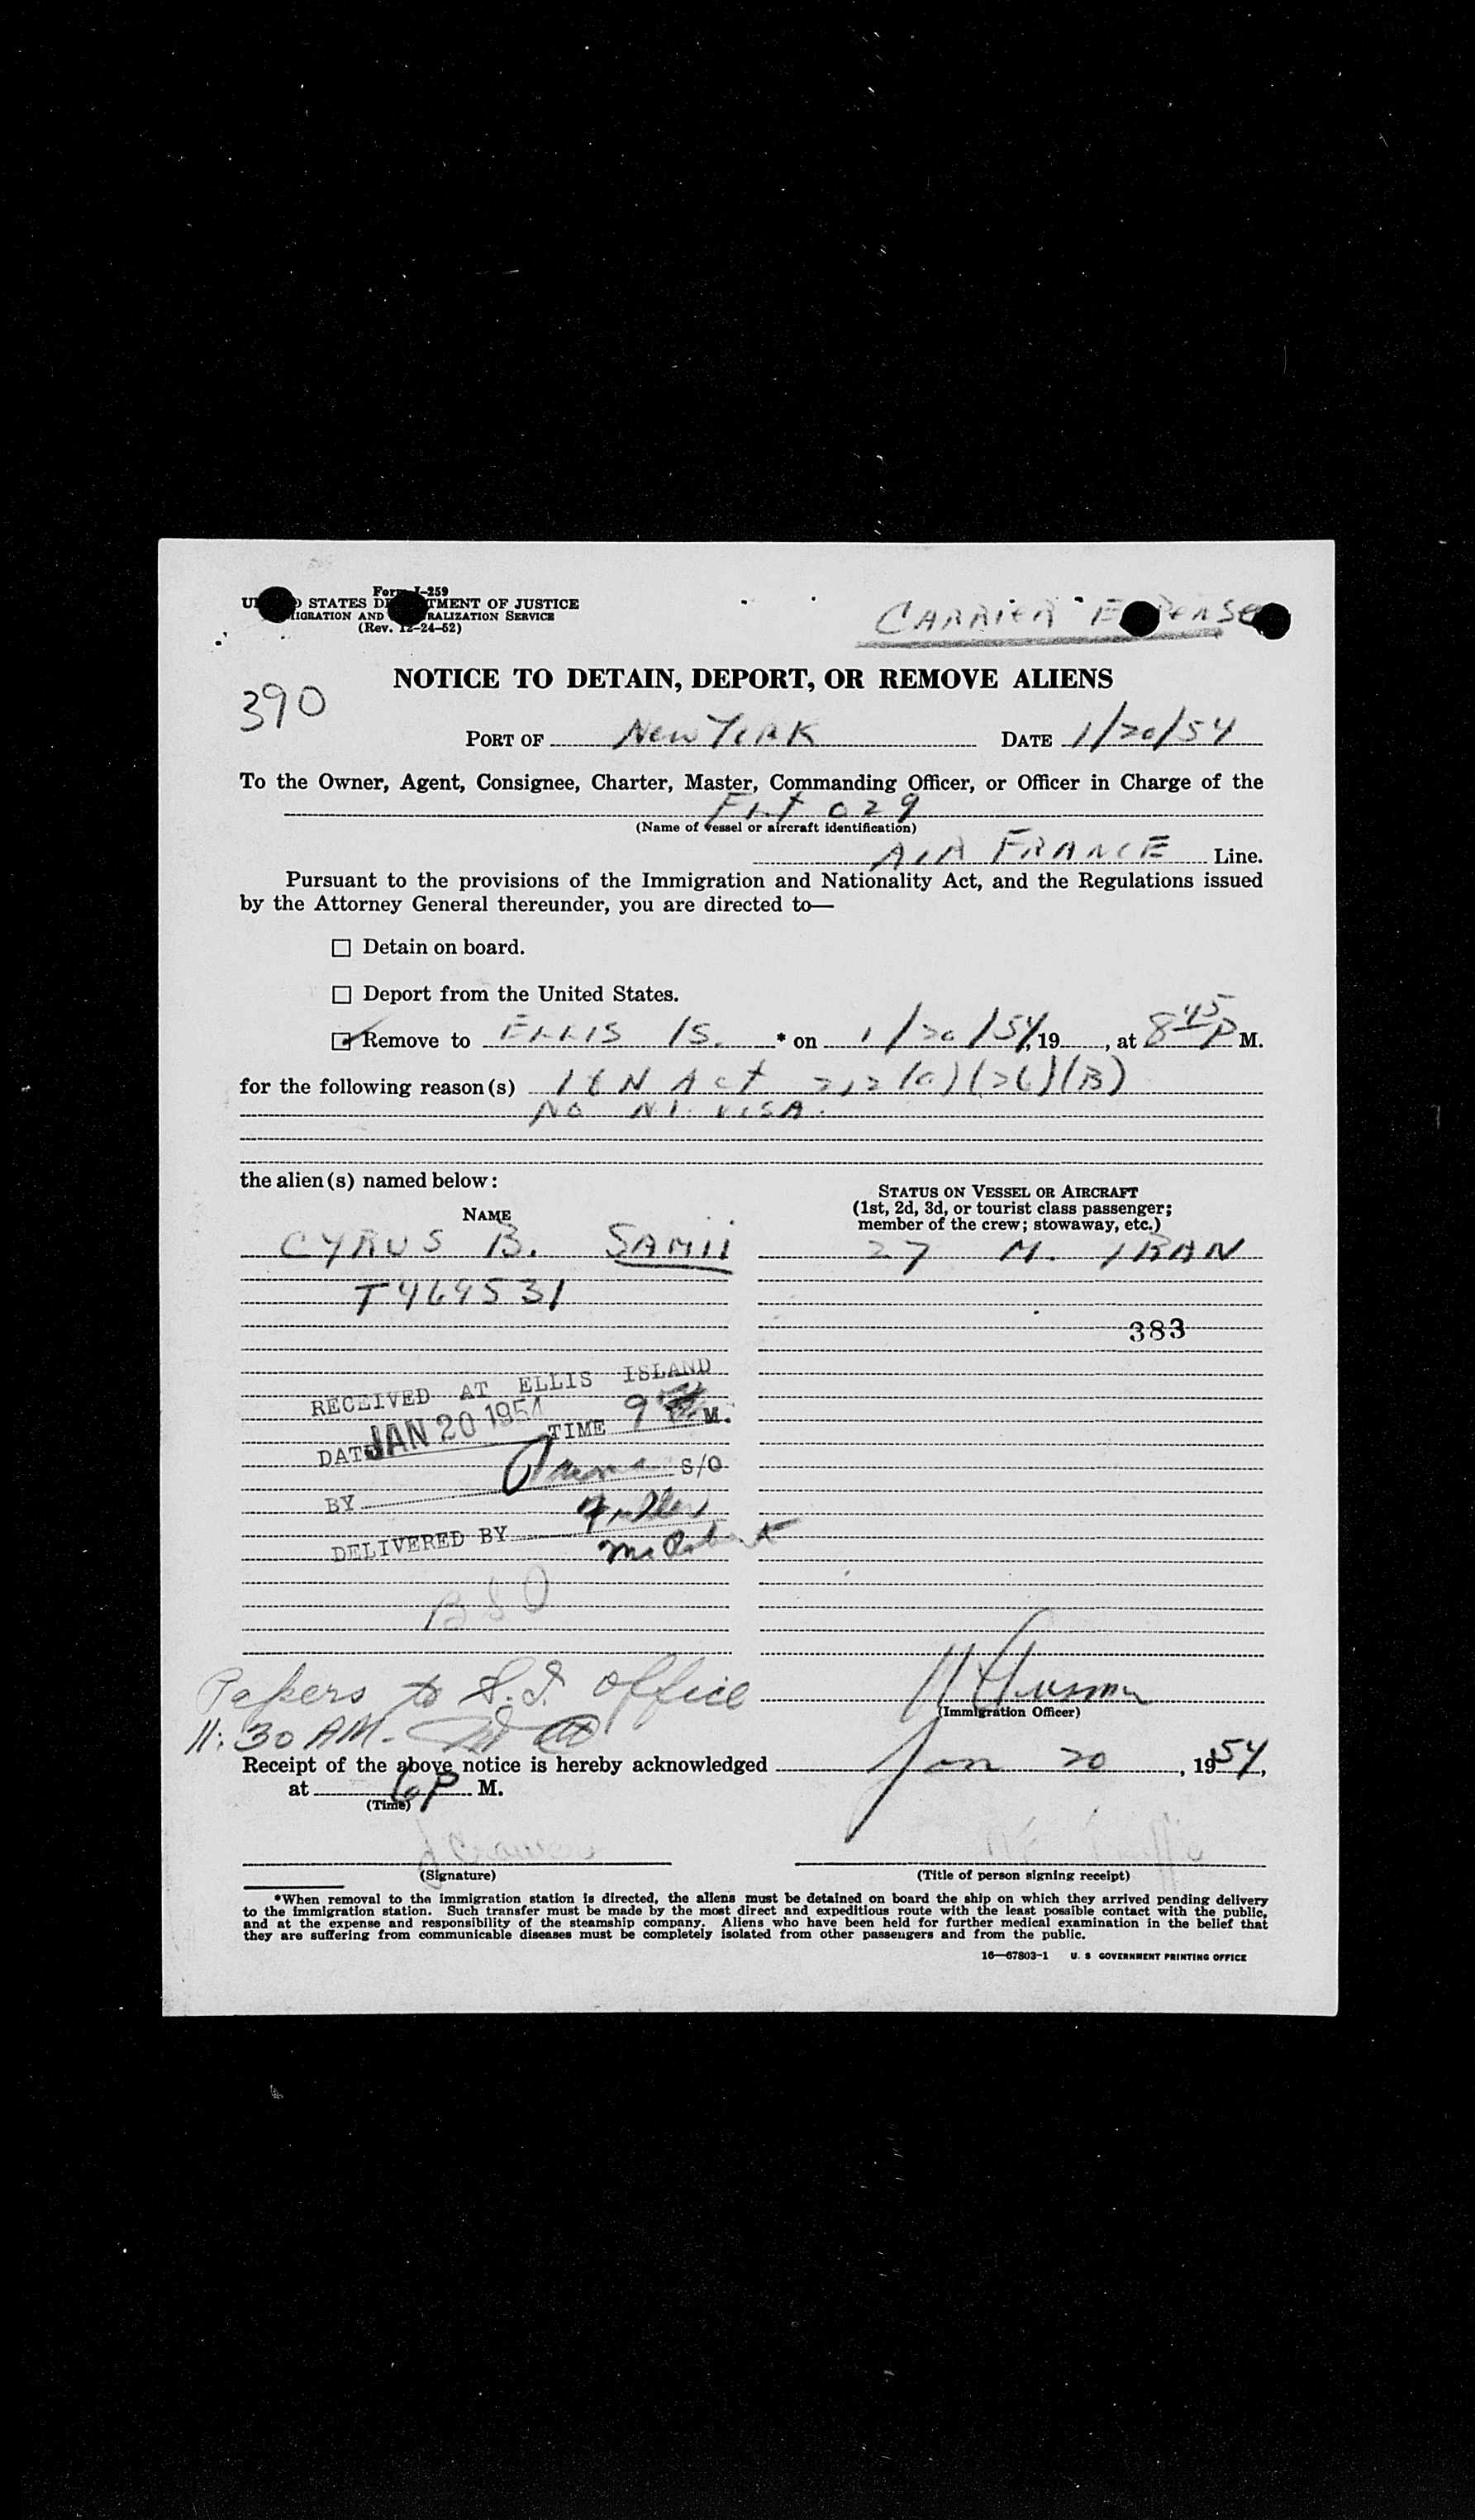 Form I-259
UNITED STATES DEPARTMENT OF JUSTICE
IMMIGRATION AND NATURALIZATION SERVICE
(Rev. 12-24-52)
CARRIER EXPENSE
NOTICE TO DETAIN, DEPORT, OR REMOVE ALIENS
390
PORT OF New York DATE 1/20/54
To the Owner, Agent, Consignee, Charter, Master, Commanding Officer, or Officer in Charge of the
FLT 029
(Name of vessel or aircraft identification)
AIR FRANCE Line.
Pursuant to the provisions of the Immigration and Nationality Act, and the Regulations issued
by the Attorney General thereunder, you are directed to—
☐ Detain on board.
☐ Deport from the United States.
☑ Remove to ELLIS IS. * on 1/20/54, 19, at 8 45 P M.
for the following reason(s) I & N Act 212(a)(26)(B)
NO N.I. VISA.
the alien(s) named below:
NAME
STATUS ON VESSEL OR AIRCRAFT
(1st, 2d, 3d, or tourist class passenger;
member of the crew; stowaway, etc.)
CYRUS B. SAMII 27 M. IRAN
T469531
383
RECEIVED AT ELLIS ISLAND
DATE JAN 20 1954 TIME 9 M.
BY S/O
DELIVERED BY
BSO
Papers to S.I. office
11:30 AM.
(Immigration Officer)
Receipt of the above notice is hereby acknowledged Jan 20, 1954,
at 6 P M.
(Time)
(Signature) (Title of person signing receipt)
*When removal to the immigration station is directed, the aliens must be detained on board the ship on which they arrived pending delivery
to the immigration station. Such transfer must be made by the most direct and expeditious route with the least possible contact with the public,
and at the expense and responsibility of the steamship company. Aliens who have been held for further medical examination in the belief that
they are suffering from communicable diseases must be completely isolated from other passengers and from the public.
16—67803-1 U. S GOVERNMENT PRINTING OFFICE